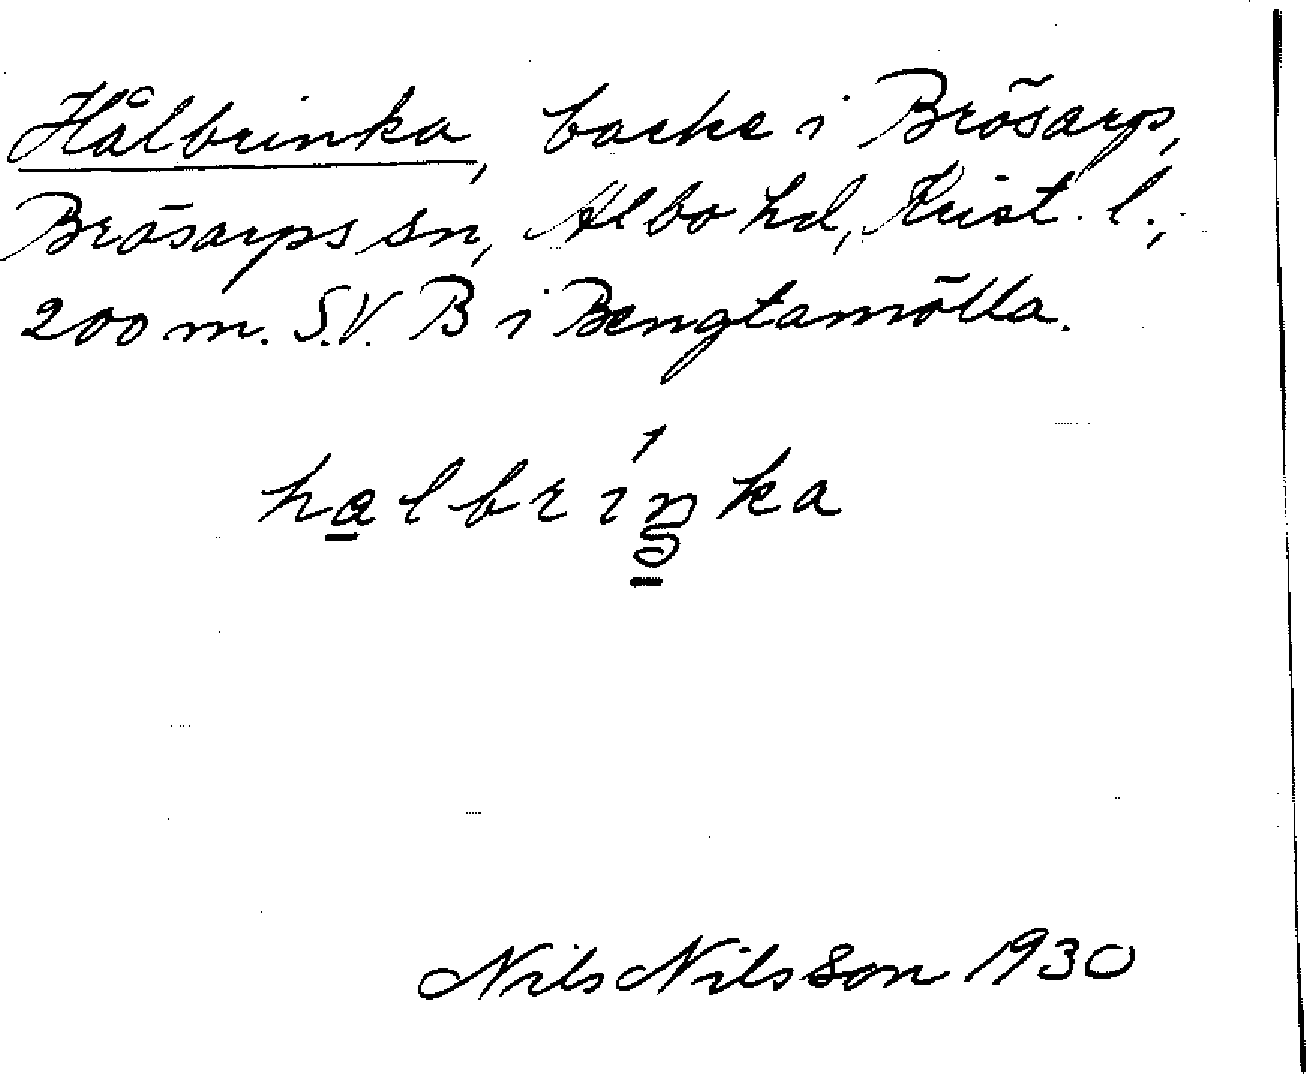 Hålbrinka, backe i Brösarp,
Brösarps sn, Albo hd, Krist. l.,
200 m. S.V. B i Bengtamölla.
halbriŋka
Nils Nilsson 1930